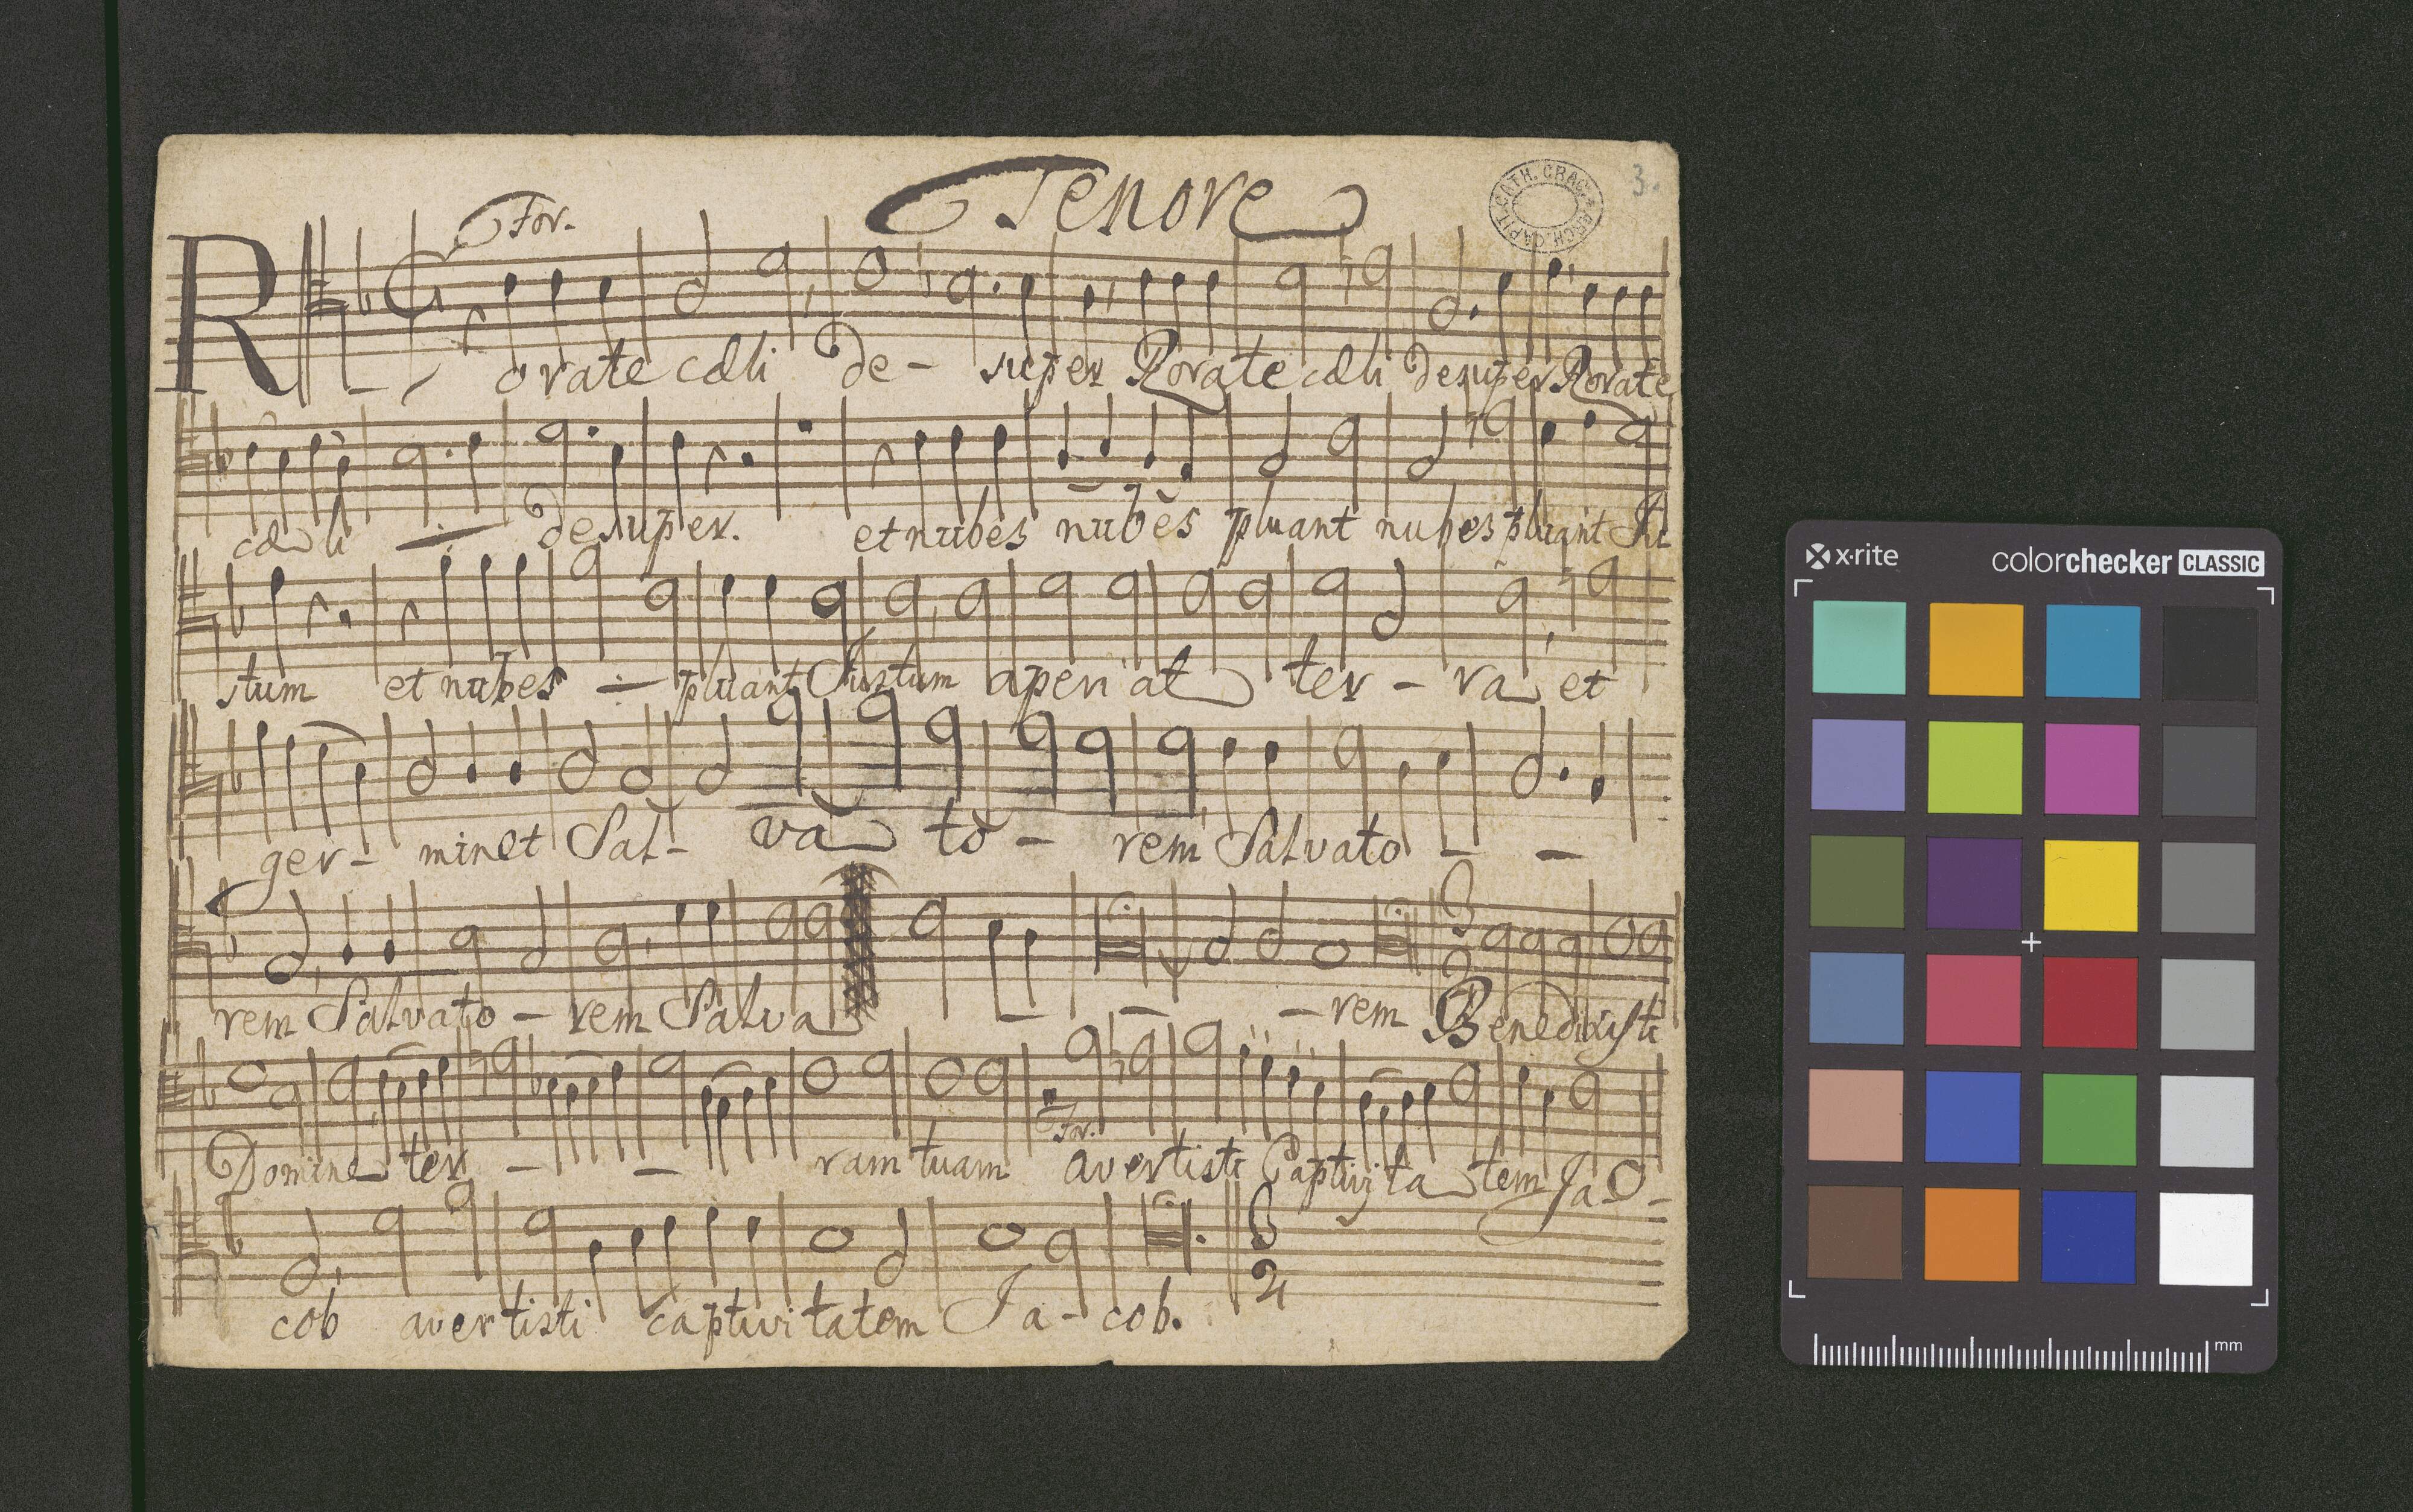 Tenore
ARCH. CAPIT. CATH. CRAC.
3.
For.
Rorate cæli de - super Rorate cæli desuper Rorate
cæli desuper. et nubes nubes pluant nubes pluant Iu
stum et nubes pluant Iustum aperi at ter - ra et
ger - minet Sal - va to - rem Salvato - -
rem Salvato - rem Salva - - - rem Benedixisti
Domine ter - - ram tuam avertisti Captivita tem Ja -
For.
cob avertisti captivi tatem Ja - cob.
x·rite
colorchecker CLASSIC
mm